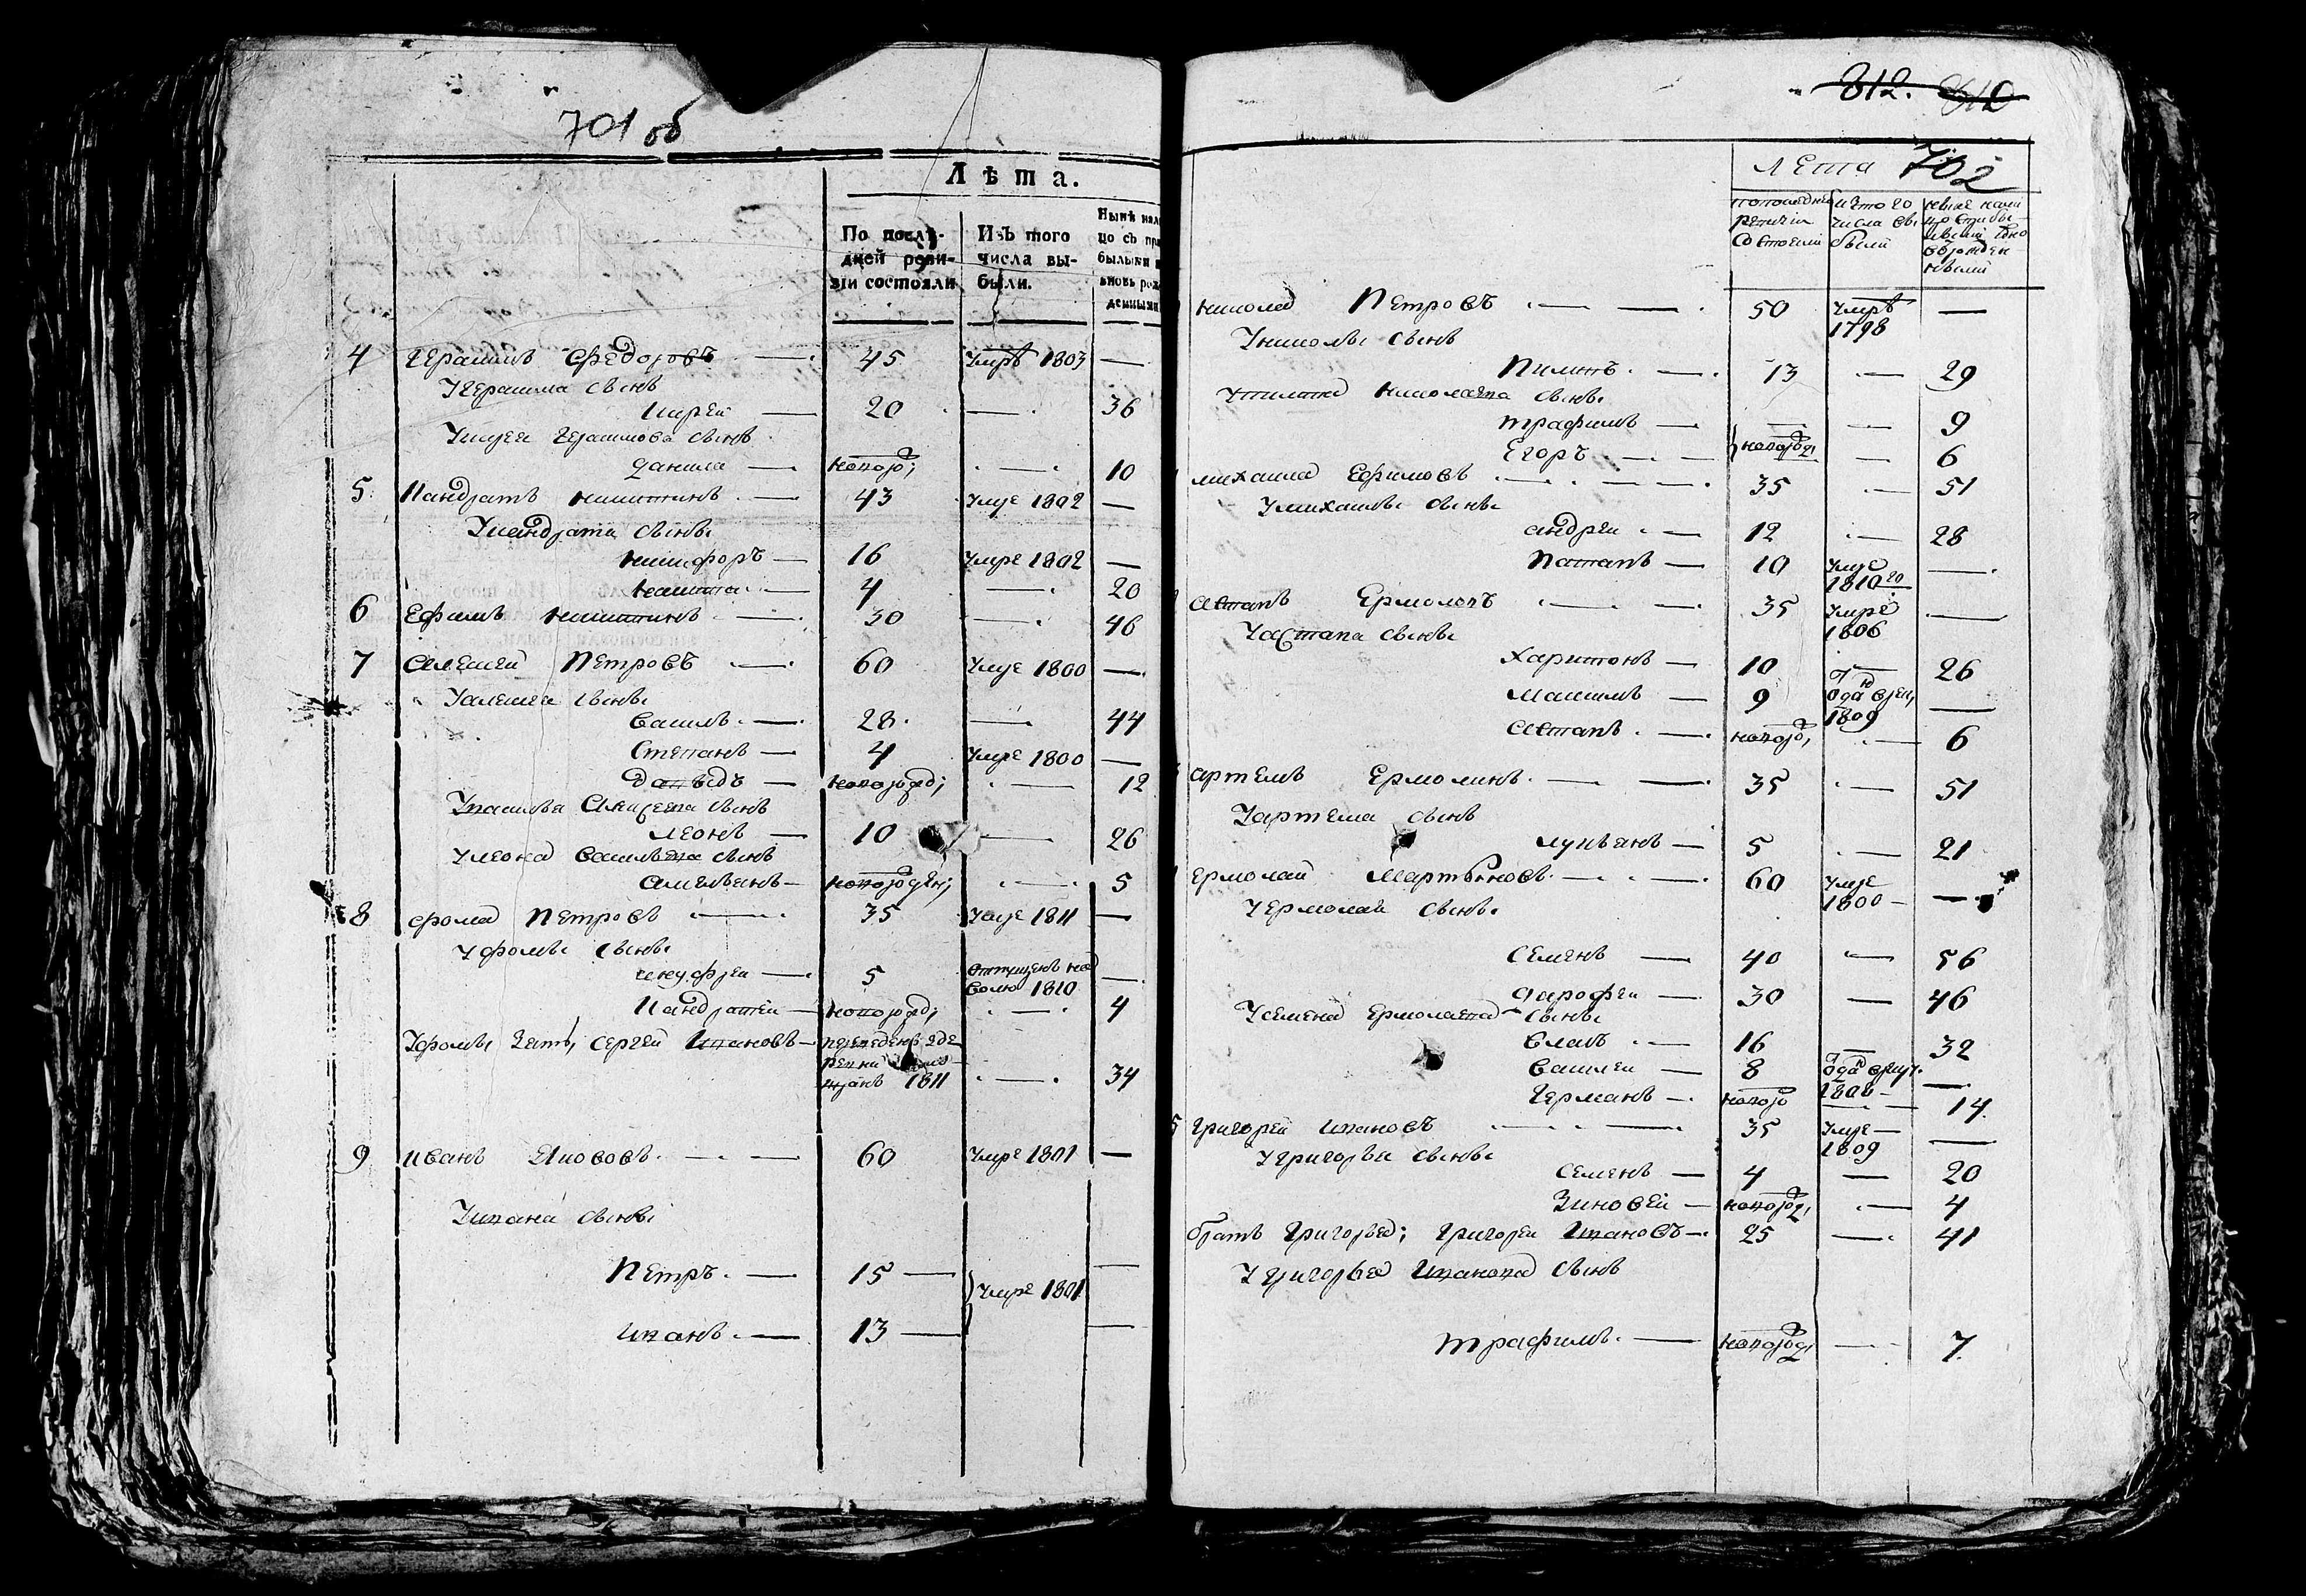 701 об
Лѣта.
По послѣ-
дней реви-
зіи состояли
Изъ того
числа вы-
были.
Нынѣ на
цо съ при
былыми и
вновь рож
денными
4 Герасимъ Федоровъ 45 Умрѣ 1803 —
У Герасима сынъ
Кирей 20 — 36
У Кирея Герасимова сынъ
Данила новорож; — 10
5 Кандратъ Никитинъ 43 Умре 1802 —
У Кандрата сыны
Никифоръ 16 Умре 1802 —
Никита 4 — 20
6 Ефимъ Никитинъ 30 — 46
7 Алексей Петровъ 60 Умре 1800 —
У Алексея сыны
Василъ 28 — 44
Степанъ 4 Умре 1800 —
Давыдъ новорожд; — 12
У Василья Алексеева сынъ
Леонъ 10 — 26
У Леона Васильева сынъ
Амельянъ новорожден; — 5
8 Фома Петровъ 35 Умре 1811 —
У Фомы сыны
Ануфреи 5 отпущенъ на
волю 1810 —
Кандратеи новорожд; — 4
У Фомы зять, Сергей Ивановъ переведенъ з де
ревни
1811 — 34
9 Иванъ Яковлевъ 60 Умре 1801 —
У Ивана сыны
Петръ 15 —
Умре 1801
Иванъ 13 —
812. 810
Лета 702
попоследней
ревизiи
состояли
исто го
числа вы
были
ныне нали
цо
вновь рожден
ными
Никола Петровъ 50 Умрѣ
1798 —
У Николы сынъ
Пикитъ 13 — 29
У Никита Николаева сыны
Трафимъ — — 9
Егоръ новорожд — 6
Михаила Ефимовъ 35 — 51
У Михаилы сыны
Андреи 12 — 28
Патапъ 10 Умре
1810го —
Астапъ Ермоловъ 35 Умре
1806 —
У Астапа сыны
Харитонъ 10 — 26
Макимъ 9 Отда врек,
1809 —
Астапъ новорож, — 6
Артемъ Ермолинъ 35 — 51
У Артема сынъ
Лукьянъ 5 — 21
Ермолай Мартыновъ 60 Умре
1800 —
У Ермолая сыны
Семенъ 40 — 56
Дарофеи 30 — 46
У Семена Ермолаева сыны
Власъ 16 — 32
Васили 8 Отда врекру.
1806 —
Германъ новорож — 14
5 Григорей Ивановъ 35 Умре
1809 —
У Григорья сыны
Семенъ 4 — 20
Зиновей новорожд — 4
братъ Григорьеа; Григореи Ивановъ 25 — 41
У Григорьеа Иванова сынъ
Трафимъ новорожд — 7